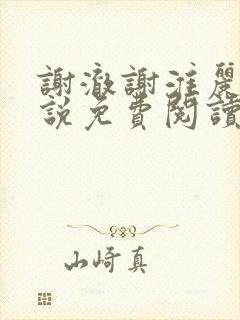 謝澈謝淮麗
說免費閱讀
山崎真